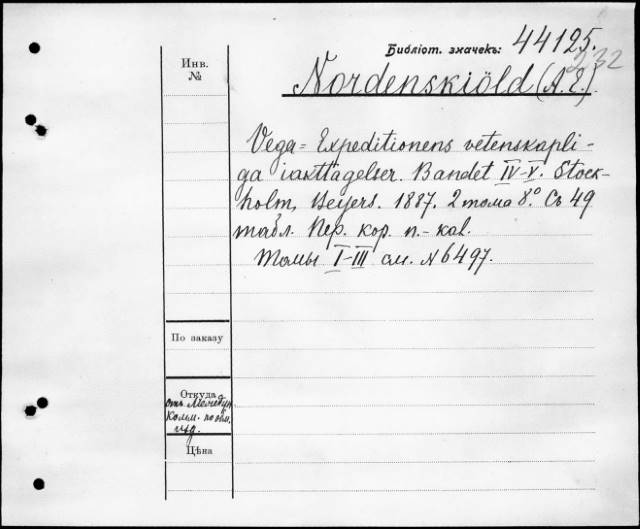 Библіот. значекъ: 44125.
232
Инв.
№
Nordenskiöld (A.E.).
Vega=Expeditionens vetenskapli-
ga iakttagelser. Bandet IV-V. Stock-
holm, Beijers. 1887. 2 тома 8.º Съ 49
табл. Пер. кор. п.-кал.
Томы I-III см. № 6497.
По заказу
Откуда
отъ Междун.
Колм. по обм.
изд.
Цѣна